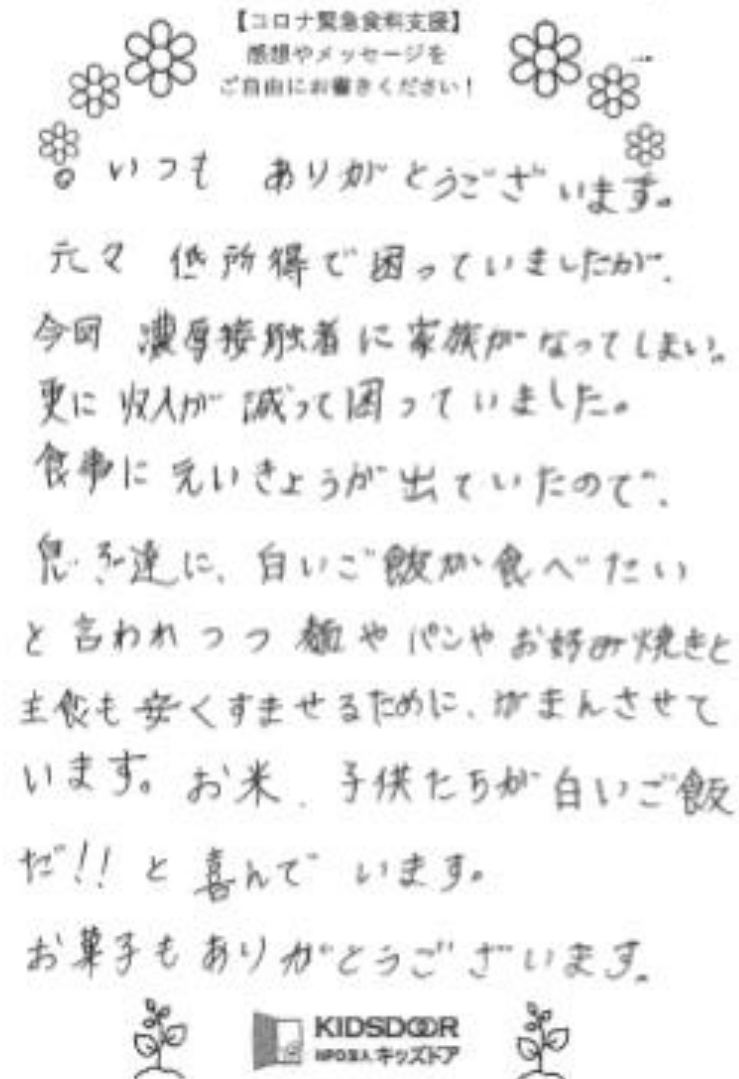 【コロナ緊急食料支援】
感想やメッセージを
ご自由にお書きください！
。いつも ありがとうございます。
元々 低所得で困っていましたが、
今回 濃厚接触者に家族がなってしまい。
更に収入が減って困っていました。
食事にえいきょうが出ていたので、
息子達に、白いご飯が食べたい
と言われつつ 麺やパンやお好み焼きと
主食も安くすませるために、がまんさせて
います。お米、子供たちが白いご飯
だ!!と喜んでいます。
お菓子もありがとうございます。
KIDSDOOR
NPO法人 キッズドア